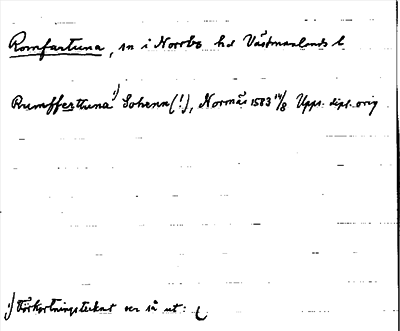 Romfartuna, sn i Norrbo hd Västmanlands l.
Rumffærttuna¹) Sohenn (!), Normås 1583 14/8 Upps. dipl. orig
¹) Förkortningstecknet ser så ut: